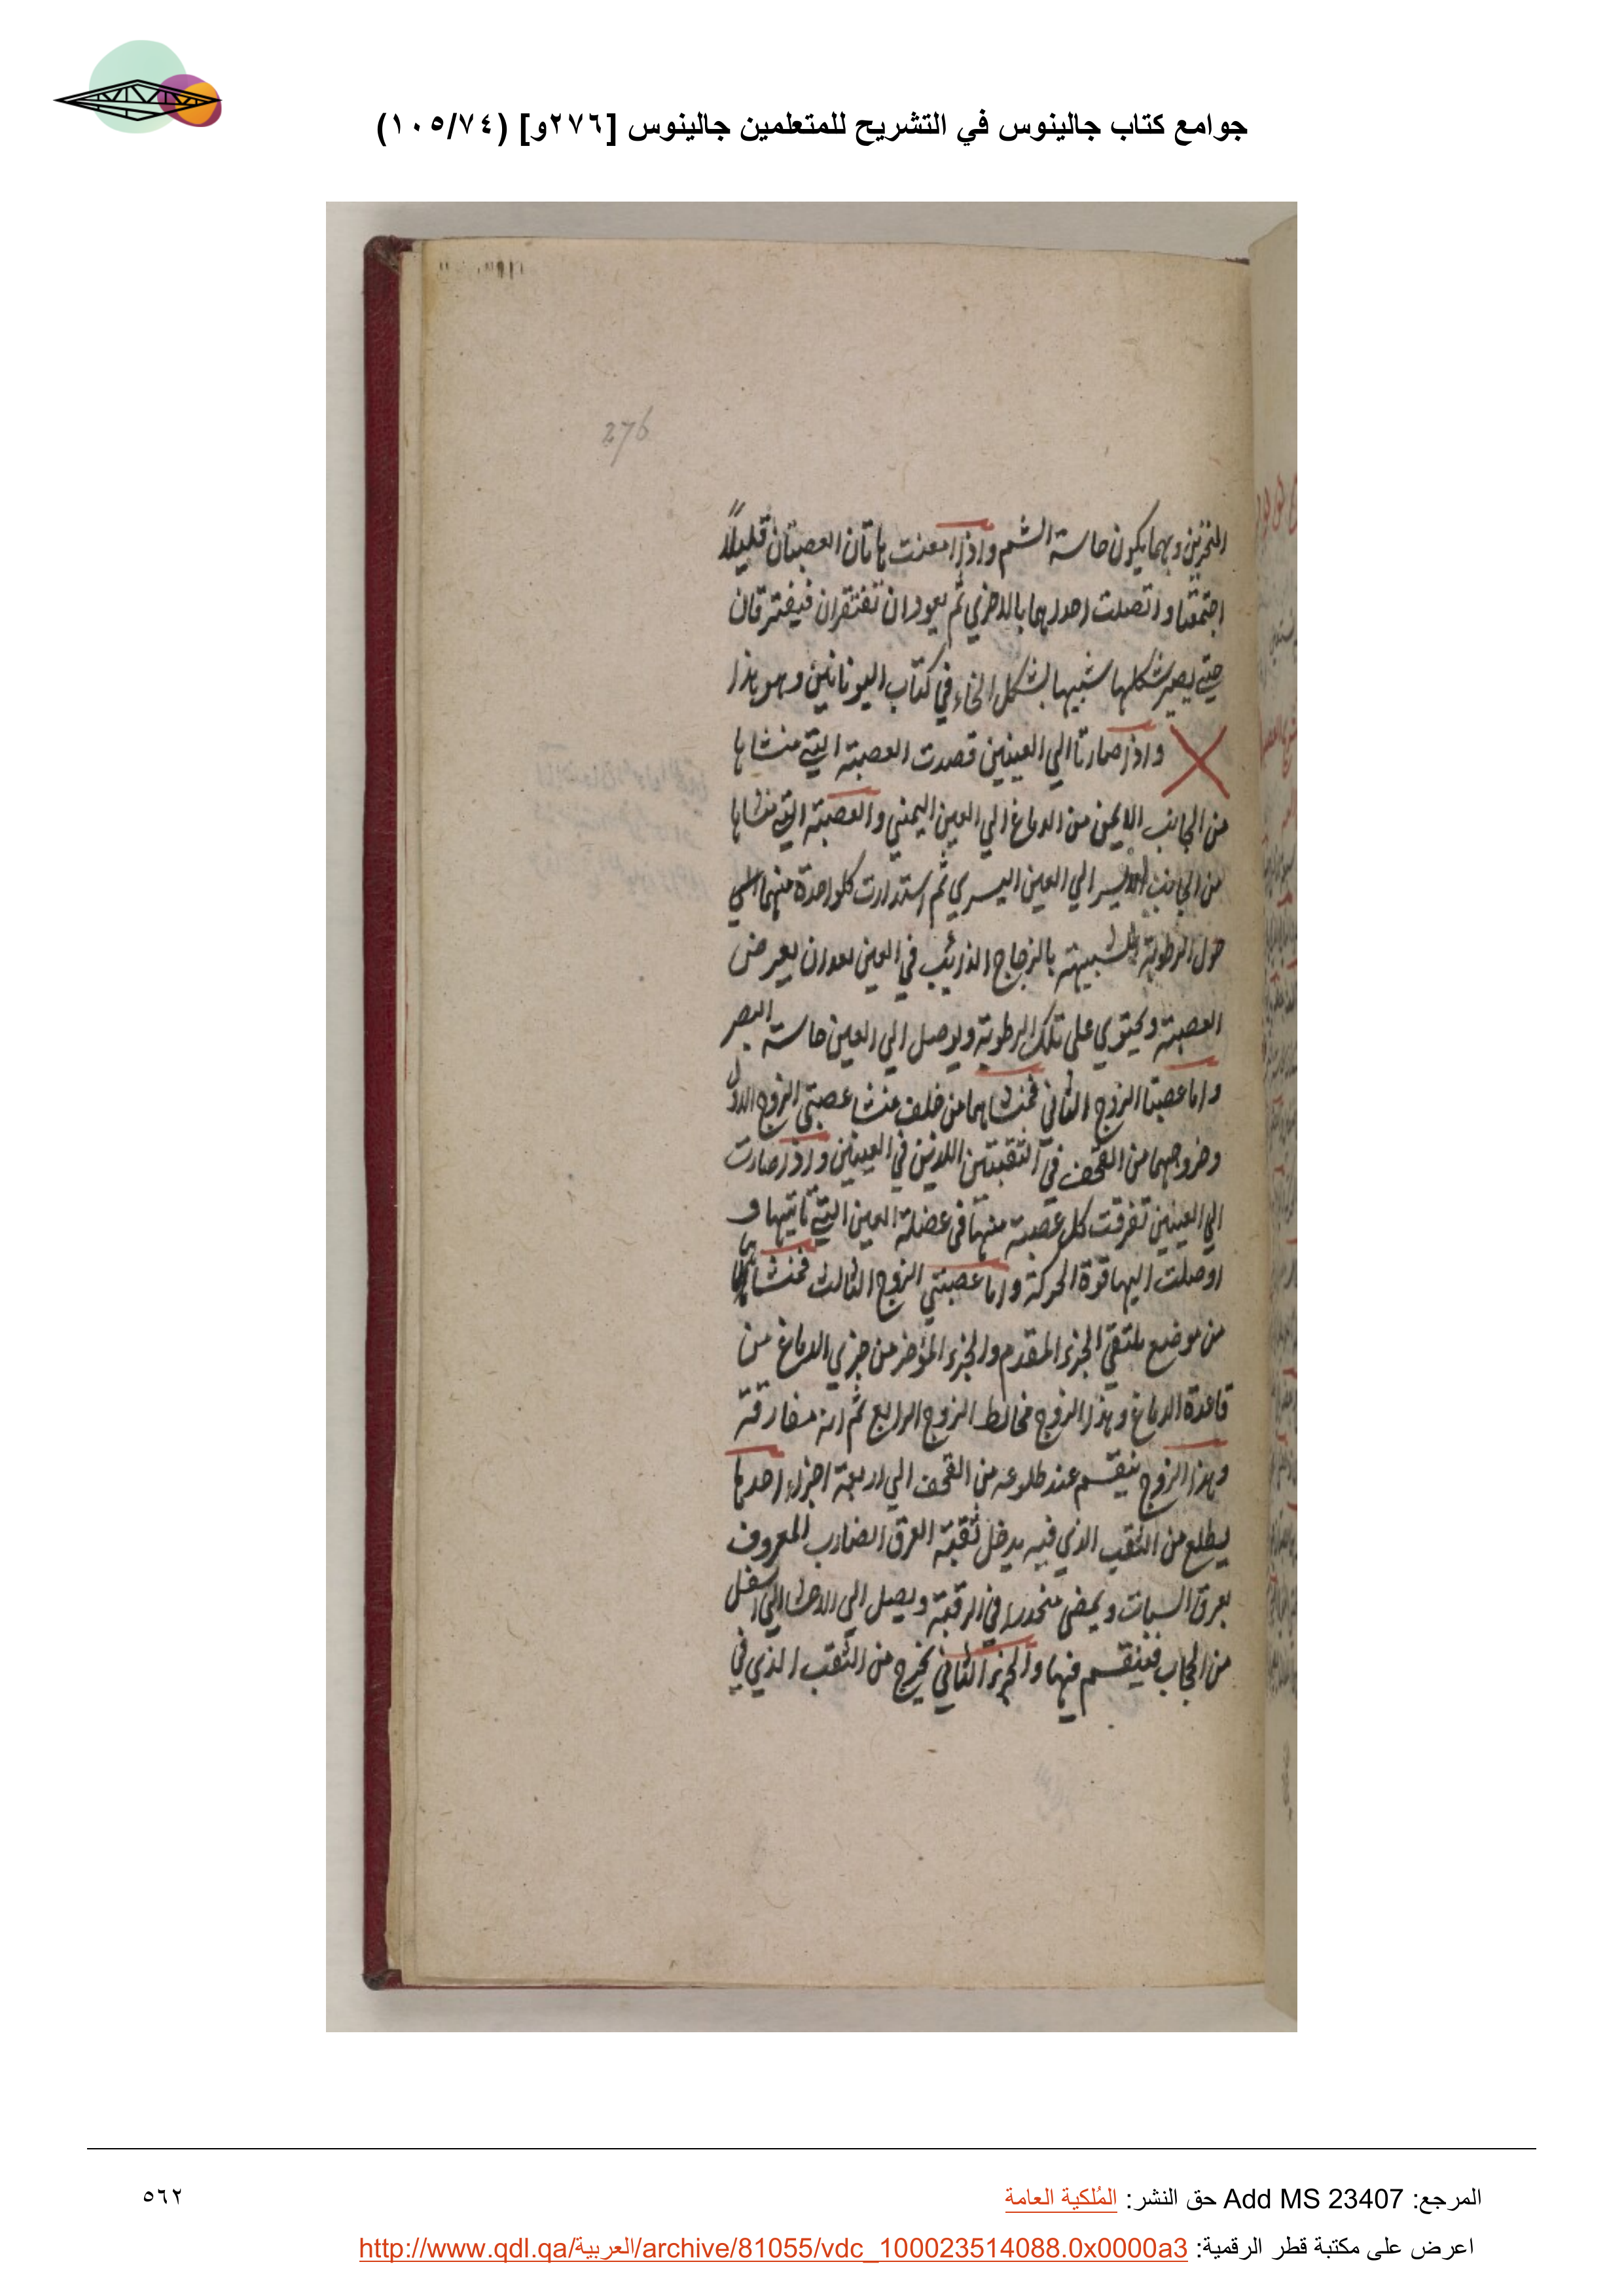 جوامع كتاب جالينوس في التشريح للمتعلمين جالينوس [٢٧٦و] (١٠٥/٧٤)
276
المنخرين وبهما يكون حاسة الشم واذا امعنت هاتان العصبتان قليلاً
اجتمعتا واتصلت احداهما بالاخري ثم يعودان تفتقران فيفترقان
حتي يصير شكلها شبيها بشكل الخاء في كتاب اليونانين وهو هذا
واذا صارتا الي العينين قصدت العصبة التي منشاها
من الجانب الايمن من الدماغ الي العين اليمني والعصبة التي منشاها
من الجانب الايسر الي العين اليسري ثم استدارت كلواحدة منهما
حول الرطوبة الشبيهة بالزجاج الذايب في العين بعد ان يعرض
العصبة ويحتوي علي تلك الرطوبة ويوصل الي العين حاسة البصر
واما عصبتا الزوج الثاني فمنشاهما من خلف منشا عصبتي الزوج الاول
وخروجهما من القحف في الثقبتين اللذين في العينين واذا صارت
الي العينين تفرقت كل عصبة منها في عضلة العين التي تاتيها و
اوصلت اليها قوة الحركة واما عصبتي الزوج الثالث فمنشاهما
من موضع ملتقي الجزء المقدم والجزء المؤخر من جزي الدماغ من
قاعدة الدماغ وهذا الزوج مخالط الزوج الرابع ثم انه مفارقة
وهذا الزوج ينقسم عند طلوعه من القحف الي اربعة اجزاء احدها
يطلع من الثقب الذي فيه يدخل ثقبة العرق الضارب المعروف
بعرق السبات ويمضي منحدرا في الرقبة ويصل الي الاحشا التي اسفل
من الحجاب فينقسم فيها والجزء الثاني يخرج من الثقب الذي في
المرجع: Add MS 23407 حق النشر: المُلكية العامة
٥٦٢
اعرض على مكتبة قطر الرقمية: http://www.qdl.qa/العربية/archive/81055/vdc_100023514088.0x0000a3